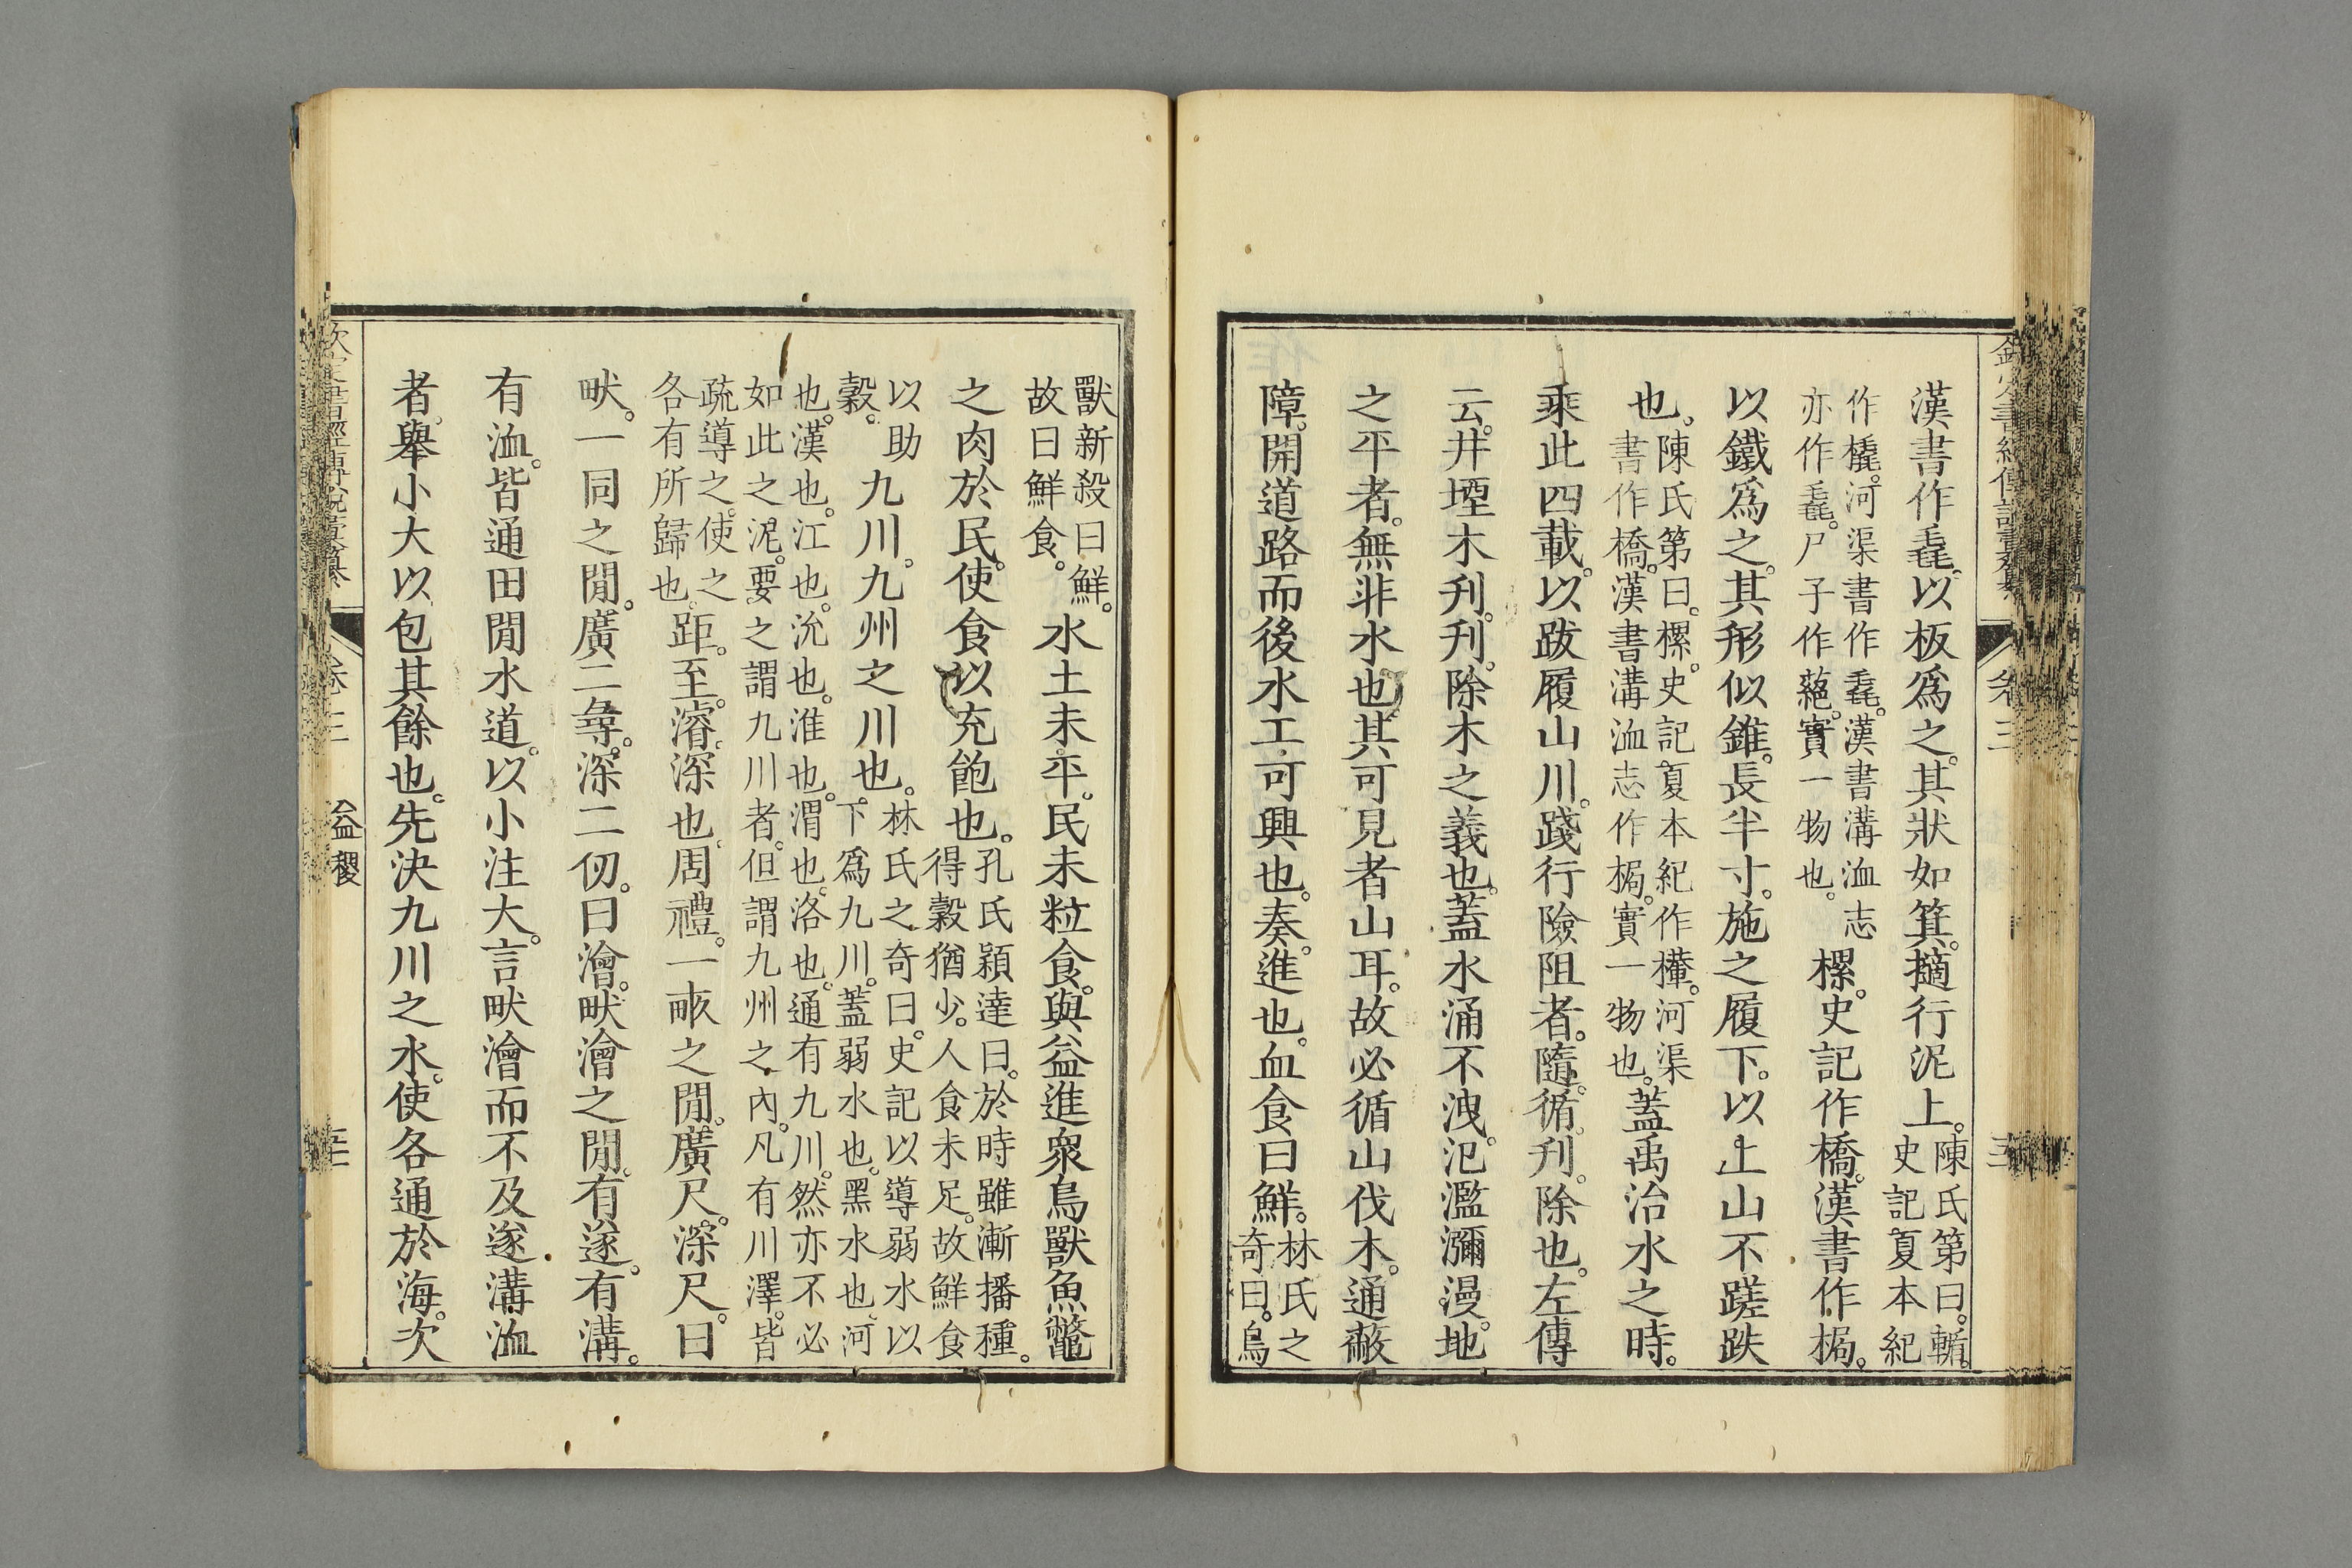 漢書作毳。以板爲之。其狀如箕。擿行泥上。陳氏第曰。輴。史記夏本紀
作橇。河渠書作毳。漢書溝洫志亦作毳。尸子作蕝。實一物也。樏。史記作橋。漢書作梮。
以鐵爲之。其形似錐。長半寸。施之履下。以上山不蹉跌
也。陳氏第曰。樏。史記夏本紀作檋。河渠書作橋。漢書溝洫志作梮。實一物也。蓋禹治水之時。
乘此四載。以跋履山川。踐行險阻者。隨。循。刋。除也。左傳
云。井堙木刋。刋。除木之義也。蓋水涌不洩。氾濫瀰漫。地
之平者。無非水也。其可見者山耳。故必循山伐木。通蔽
障。開道路而後水工可興也。奏。進也。血食曰鮮。林氏之奇曰。鳥
獸新殺曰鮮。故曰鮮食。水土未平。民未粒食。與益進衆鳥獸魚鼈
之肉於民。使食以充飽也。孔氏穎達曰。於時雖漸播種。得穀猶少。人食未足。故鮮食
以助穀。九川。九州之川也。林氏之奇曰。史記以導弱水以下爲九川。蓋弱水也。黑水也。河
也。漢也。江也。沇也。淮也。渭也。洛也。通有九川。然亦不必如此之泥。要之謂九川者。但謂九州之內。凡有川澤。皆
疏導之。使之各有所歸也。距。至。濬。深也。周禮。一畞之閒。廣尺。深尺。曰
畎。一同之閒。廣二㝷。深二仞。曰澮。畎澮之閒。有遂。有溝。
有洫。皆通田閒水道。以小注大。言畎澮而不及遂溝洫
者。舉小大以包其餘也。先決九川之水。使各通於海。次
卷三
益稷